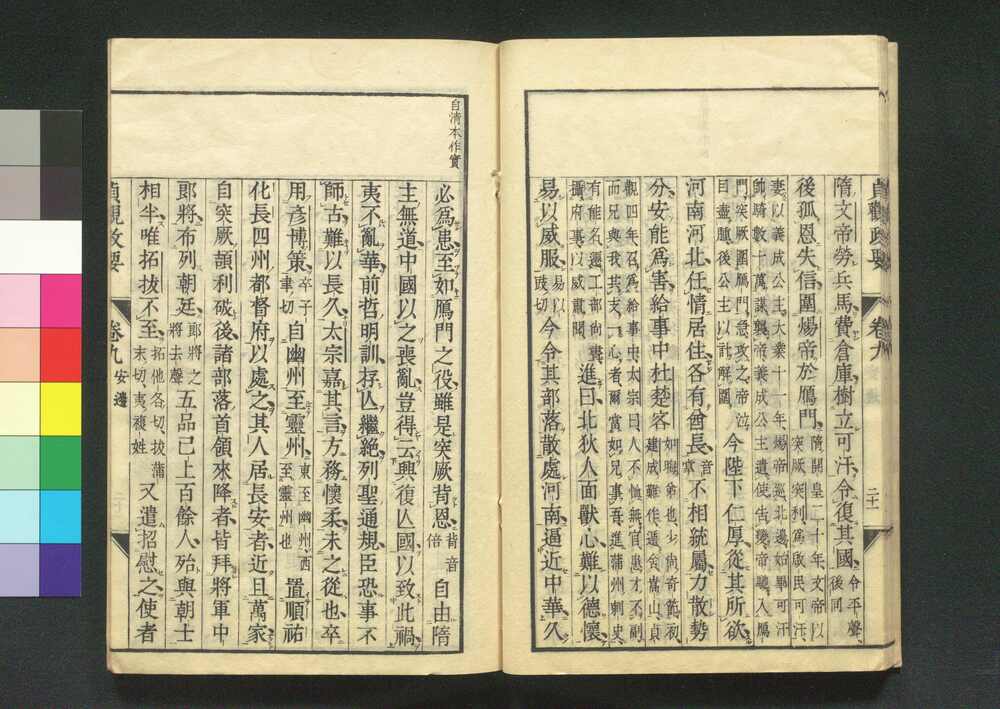 貞觀政要
卷九
二十一
隋文帝勞兵馬費倉庫樹立可汗令復其國令平聲後同
後孤恩失信圍煬帝於鴈門隋開皇二十年文帝以突厥突利為啟民可汗
妻以義成公主大業十一年煬帝巡北邊始畢可汗帥騎數十萬謀襲帝義成公主遣使告變帝馳入鴈
門突厥圍鴈門急攻之帝泣目盡腫後公主以計解圍今陛下仁厚從其所欲
河南河北任情居住各有酋長音掌不相統屬力散勢
分安能為害給事中杜楚客如晦弟也少尚奇節初建成難作遁舍嵩山貞
觀四年召為給事中太宗曰人不恤無官患才不副而兄與我其支一心者爾當如兄事吾進蒲州刺史
有能名遷工部尚書攝府事以威肅聞進曰北狄人面獸心難以德懷
易以威服易以豉切今令其部落散處河南逼近中華久
自清本作實
必為患至如鴈門之役雖是突厥背恩背音倍自由隋
主無道中國以之喪亂豈得云興復亡國以致此禍
夷不亂華前哲明訓存亡繼絶列聖通規臣恐事不
師古難以長久太宗嘉其言方務懷柔未之從也卒
用彥博策卒子聿切自幽州至靈州東至幽州西至靈州也置順祐
化長四州都督府以處之其人居長安者近且萬家
自突厥頡利破後諸部落首領來降者皆拜將軍中
郎將布列朝廷郎將之將去聲五品已上百餘人殆與朝士
相半唯拓拔不至拓他各切拔蒲末切夷複姓又遣招慰之使者
貞觀政要
卷九
安邊